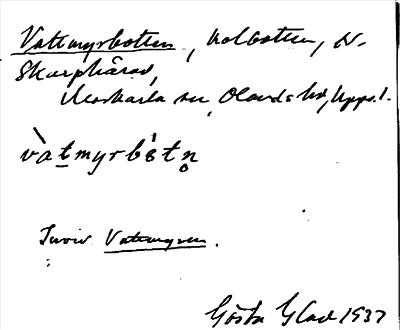 Vattmyrbotten, kolbotten, N.
Skarphärad,
Morkarla sn, Olands hd, Upps. l.
vàtmyrbòtn̥
Invid Vattmyren.
Gösta Glad 1937